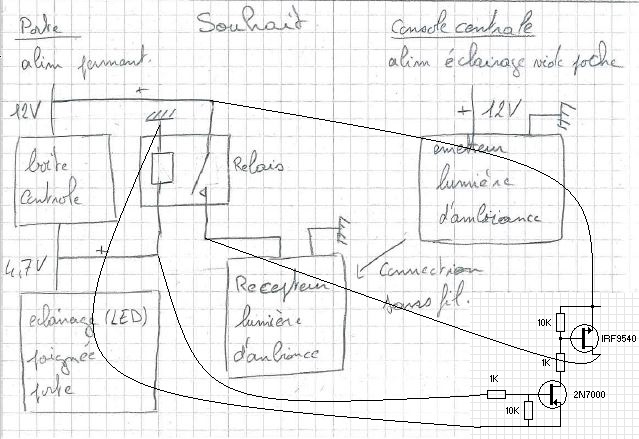 Porte
Souhait
Console centrale
alim permant.
alim éclairage vide poche
+
12V
+ 12V
boîte
controle
Relais
emetteur
lumière
d'ambiance
4,7V
+
Connection
sans fil.
Recepteur
lumière
d'ambiance
eclairage (LED)
poignée
porte
10K
IRF9540
1K
1K
2N7000
10K